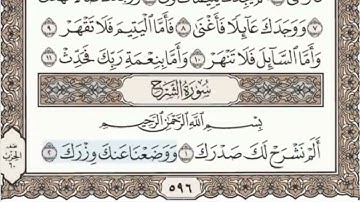 ٧ وَوَجَدَكَ عَآئِلًا فَأَغْنَىٰ ٨ فَأَمَّا ٱلْيَتِيمَ فَلَا تَقْهَرْ ٩
وَأَمَّا ٱلسَّآئِلَ فَلَا تَنْهَرْ ١٠ وَأَمَّا بِنِعْمَةِ رَبِّكَ فَحَدِّثْ ١١
سُورَةُ الشَّرْحِ
بِسْمِ ٱللَّهِ ٱلرَّحْمَٰنِ ٱلرَّحِيمِ
أَلَمْ نَشْرَحْ لَكَ صَدْرَكَ ١ وَوَضَعْنَا عَنكَ وِزْرَكَ ٢
٥٩٦
نصف
الحزب
٦٠